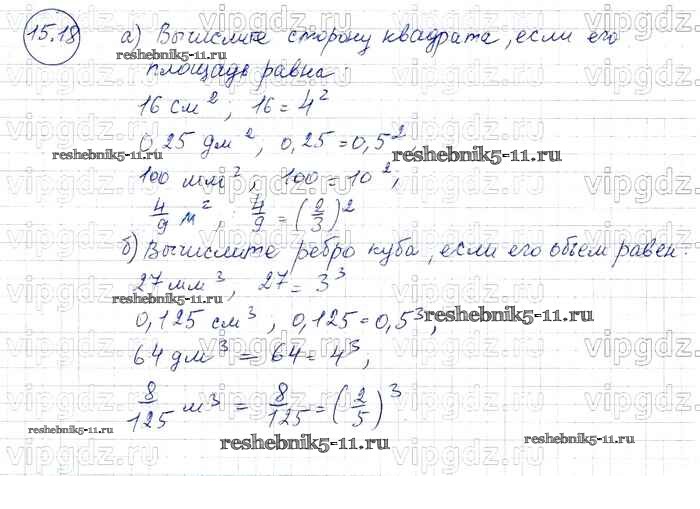 15.18 а) Вычислите сторону квадрата, если его
reshebnik5-11.ru
площадь равна:
16 см², 16 = 4²
0,25 дм², 0,25 = 0,5²,
reshebnik5-11.ru reshebnik5-11.ru
100 мм², 100 = 10²,
4/9 м², 4/9 = (2/3)²
б) Вычислите ребро куба, если его объем равен:
27 мм³, 27 = 3³
reshebnik5-11.ru
0,125 см³, 0,125 = 0,5³,
reshebnik5-11.ru
64 дм³ = 64 = 4³,
8/125 м³ = 8/125 = (2/5)³
reshebnik5-11.ru
reshebnik5-11.ru
reshebnik5-11.ru
vipgdz.ru vipgdz.ru vipgdz.ru vipgdz.ru